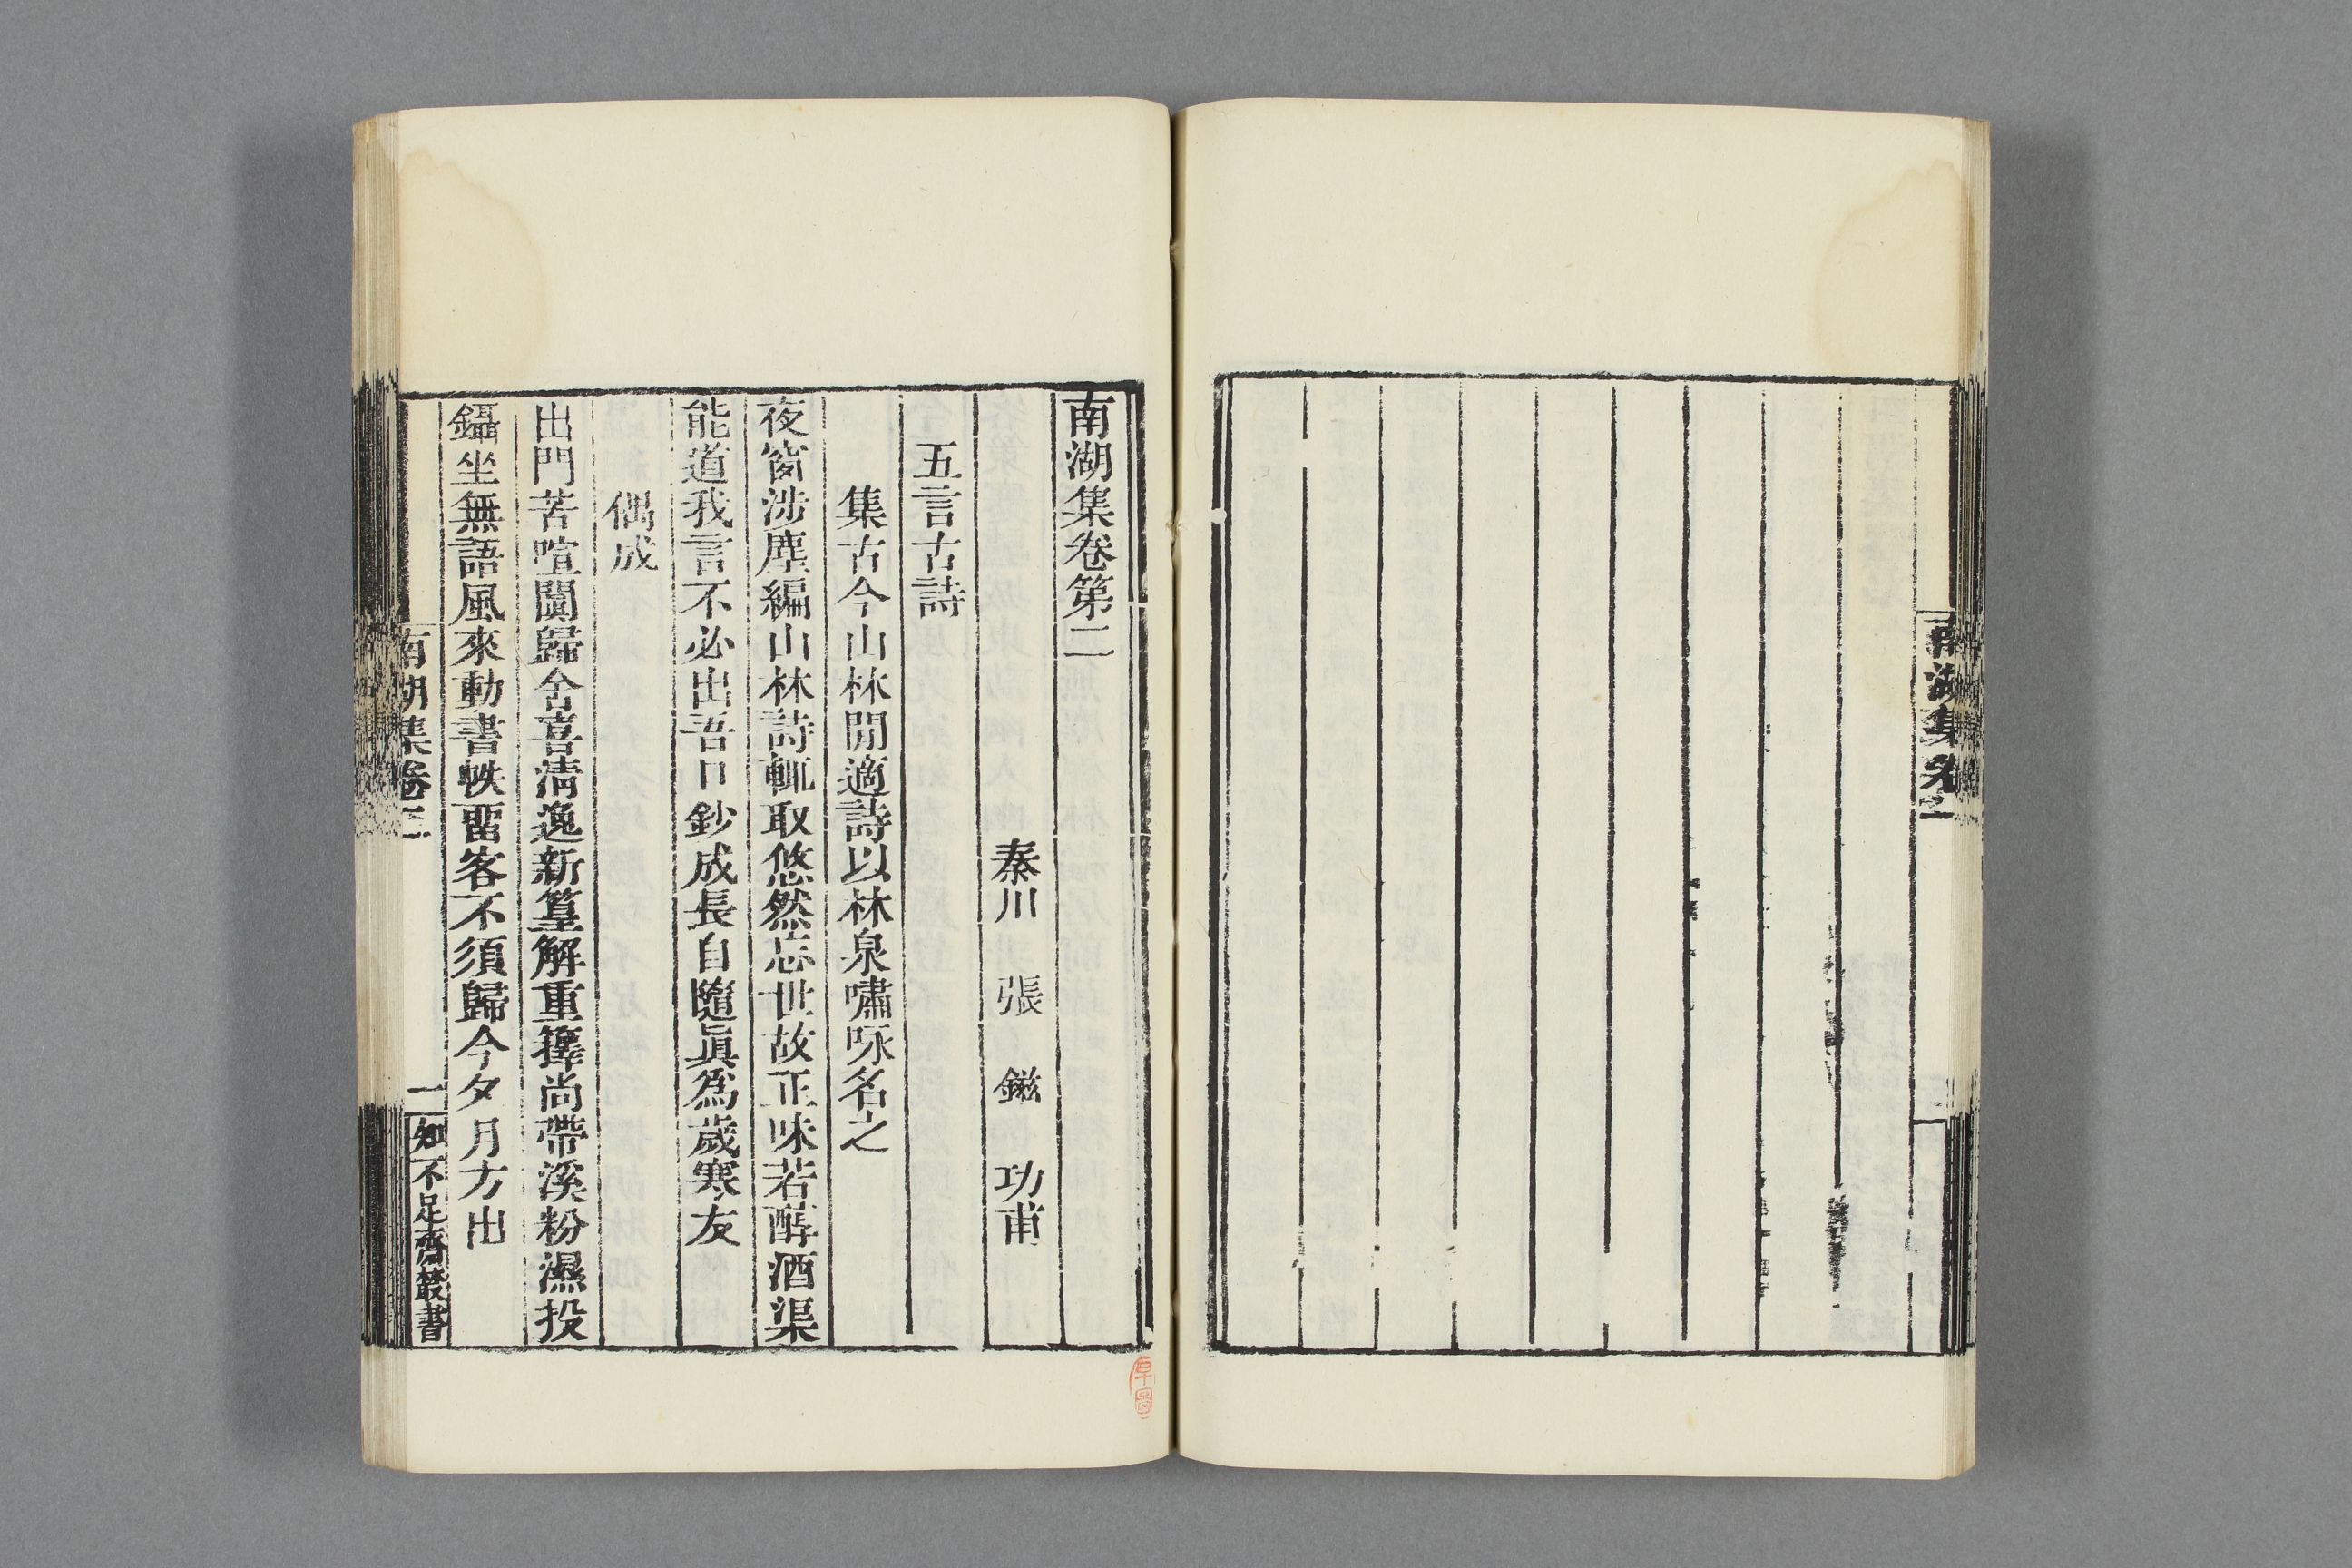 南湖集卷一
南湖集卷第二
秦川 張 鎡 功甫
五言古詩
集古今山林閒適詩以林泉嘯咏名之
夜窗涉塵編山林詩輒取悠然忘世故正味若醇酒渠
能道我言不必出吾口鈔成長自隨眞爲歲寒友
偶成
出門苦喧闐歸舍喜清逸新篁解重籜尚帶溪粉濕投
鑷坐無語風來動書帙畱客不須歸今夕月方出
南湖集卷二
一
知不足齋叢書